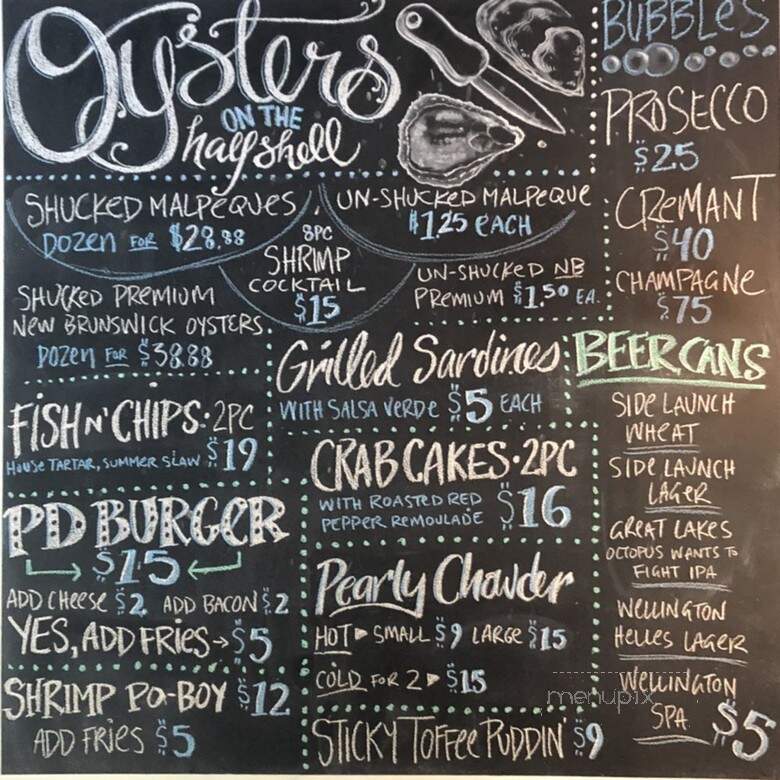 Oysters
ON THE
half shell
SHUCKED MALPEQUES
DOZEN FOR $28.88
UN-SHUCKED MALPEQUE
$1.25 EACH
8PC
SHRIMP
COCKTAIL
$15
UN-SHUCKED NB
PREMIUM $1.50 EA.
SHUCKED PREMIUM
NEW BRUNSWICK OYSTERS.
DOZEN FOR $38.88
Grilled Sardines
WITH SALSA VERDE $5 EACH
FISH N' CHIPS · 2PC
HOUSE TARTAR, SUMMER SLAW $19
CRAB CAKES · 2PC
WITH ROASTED RED
PEPPER REMOULADE $16
PD BURGER
$15
ADD CHEESE $2 ADD BACON $2
YES, ADD FRIES → $5
Pearly Chowder
HOT ▸ SMALL $9 LARGE $15
COLD FOR 2 ▸ $15
SHRIMP PO-BOY $12
ADD FRIES $5
STICKY TOFFEE PUDDIN' $9
BUBBLES
PROSECCO
$25
CREMANT
$40
CHAMPAGNE
$75
BEER CANS
SIDE LAUNCH
WHEAT
SIDE LAUNCH
LAGER
GREAT LAKES
OCTOPUS WANTS TO
FIGHT IPA
WELLINGTON
HELLES LAGER
WELLINGTON
SPA
$5
menupix